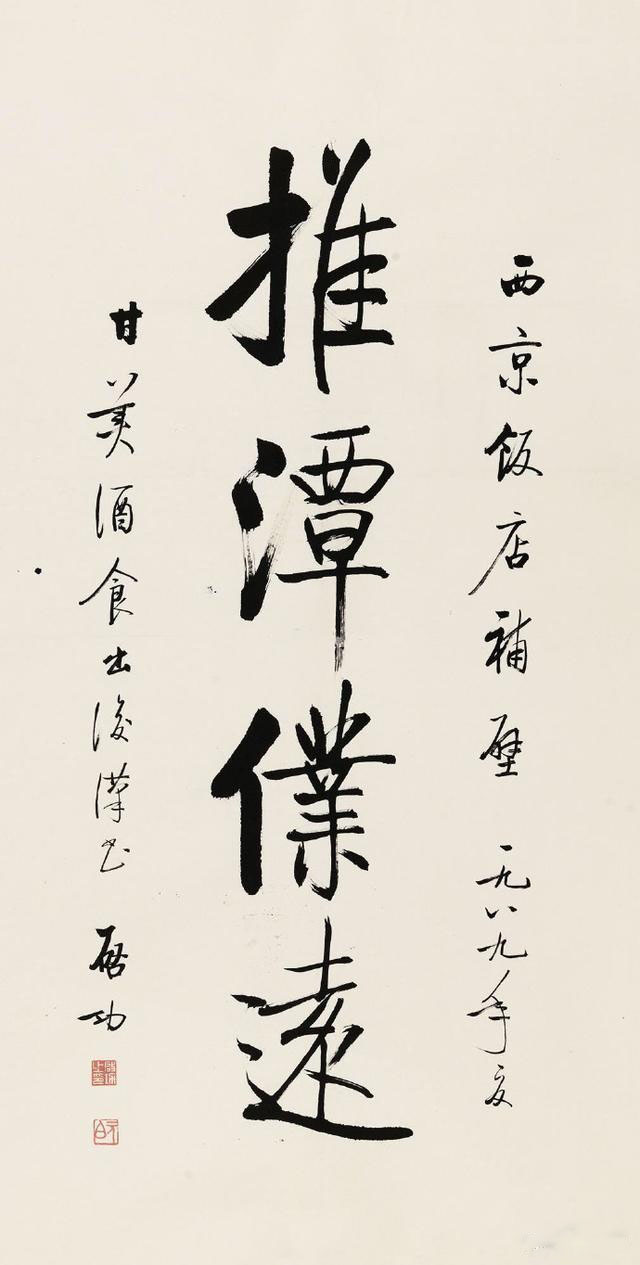 西京飯店補壁 一九八九年夏
推潭僕遠
甘美酒食出後漢书 启功